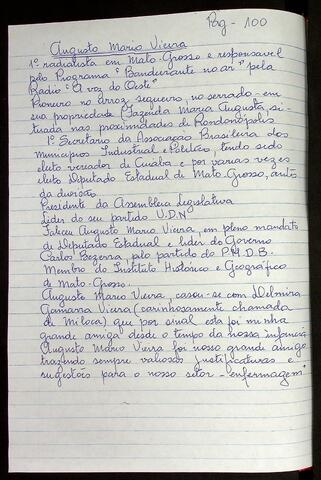 Pág - 100
Augusto Mario Vieira
1º radialista em Mato-Grosso e responsavel
pelo Programa "Bandeirante no ar" pela
Radio "A voz do Oeste"
Pioneiro no arroz sequeiro, no serrado - em
sua propriedade (Fazenda Maria Augusta, si-
tuada nas proximidades de Rondonópolis
1º Secretario da Associação Brasileira dos
Municipios Industrial e Politico, tendo sido
eleito vereador de Cuiabá e por varias vezes
eleito Deputado Estadual de Mato-Grosso, antes
da divisão.
Presidente da Assembleia Legislativa
Lider do seu partido U.D.N
Faleceu Augusto Mario Vieira, em pleno mandato
de Deputado Estadual e lider do Governo
Carlos Bezerra, pelo partido do P.M.D.B.
Membro do Instituto Histórico e Geográfico
de Mato-Grosso.
Augusto Mario Vieira, casou-se com Delmira
Gamarra Vieira (carinhosamente chamada
de Miloca) que por sinal esta foi minha
grande amiga desde o tempo da nossa infância
Augusto Mario Vieira foi nosso grande amigo
trazendo sempre valiosas justificaturas e
sugestões para o nosso setor - enfermagem"